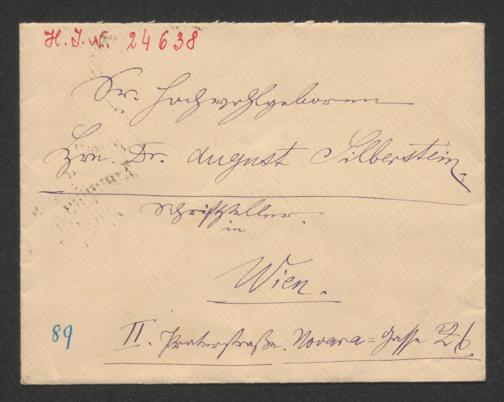 H. I. N. 24638
Sr. Hochwohlgeboren
Hrn. Dr. August Silberstein.
Schriftsteller.
in
Wien.
89
II. Praterstraße. Novara=Gasse 26.